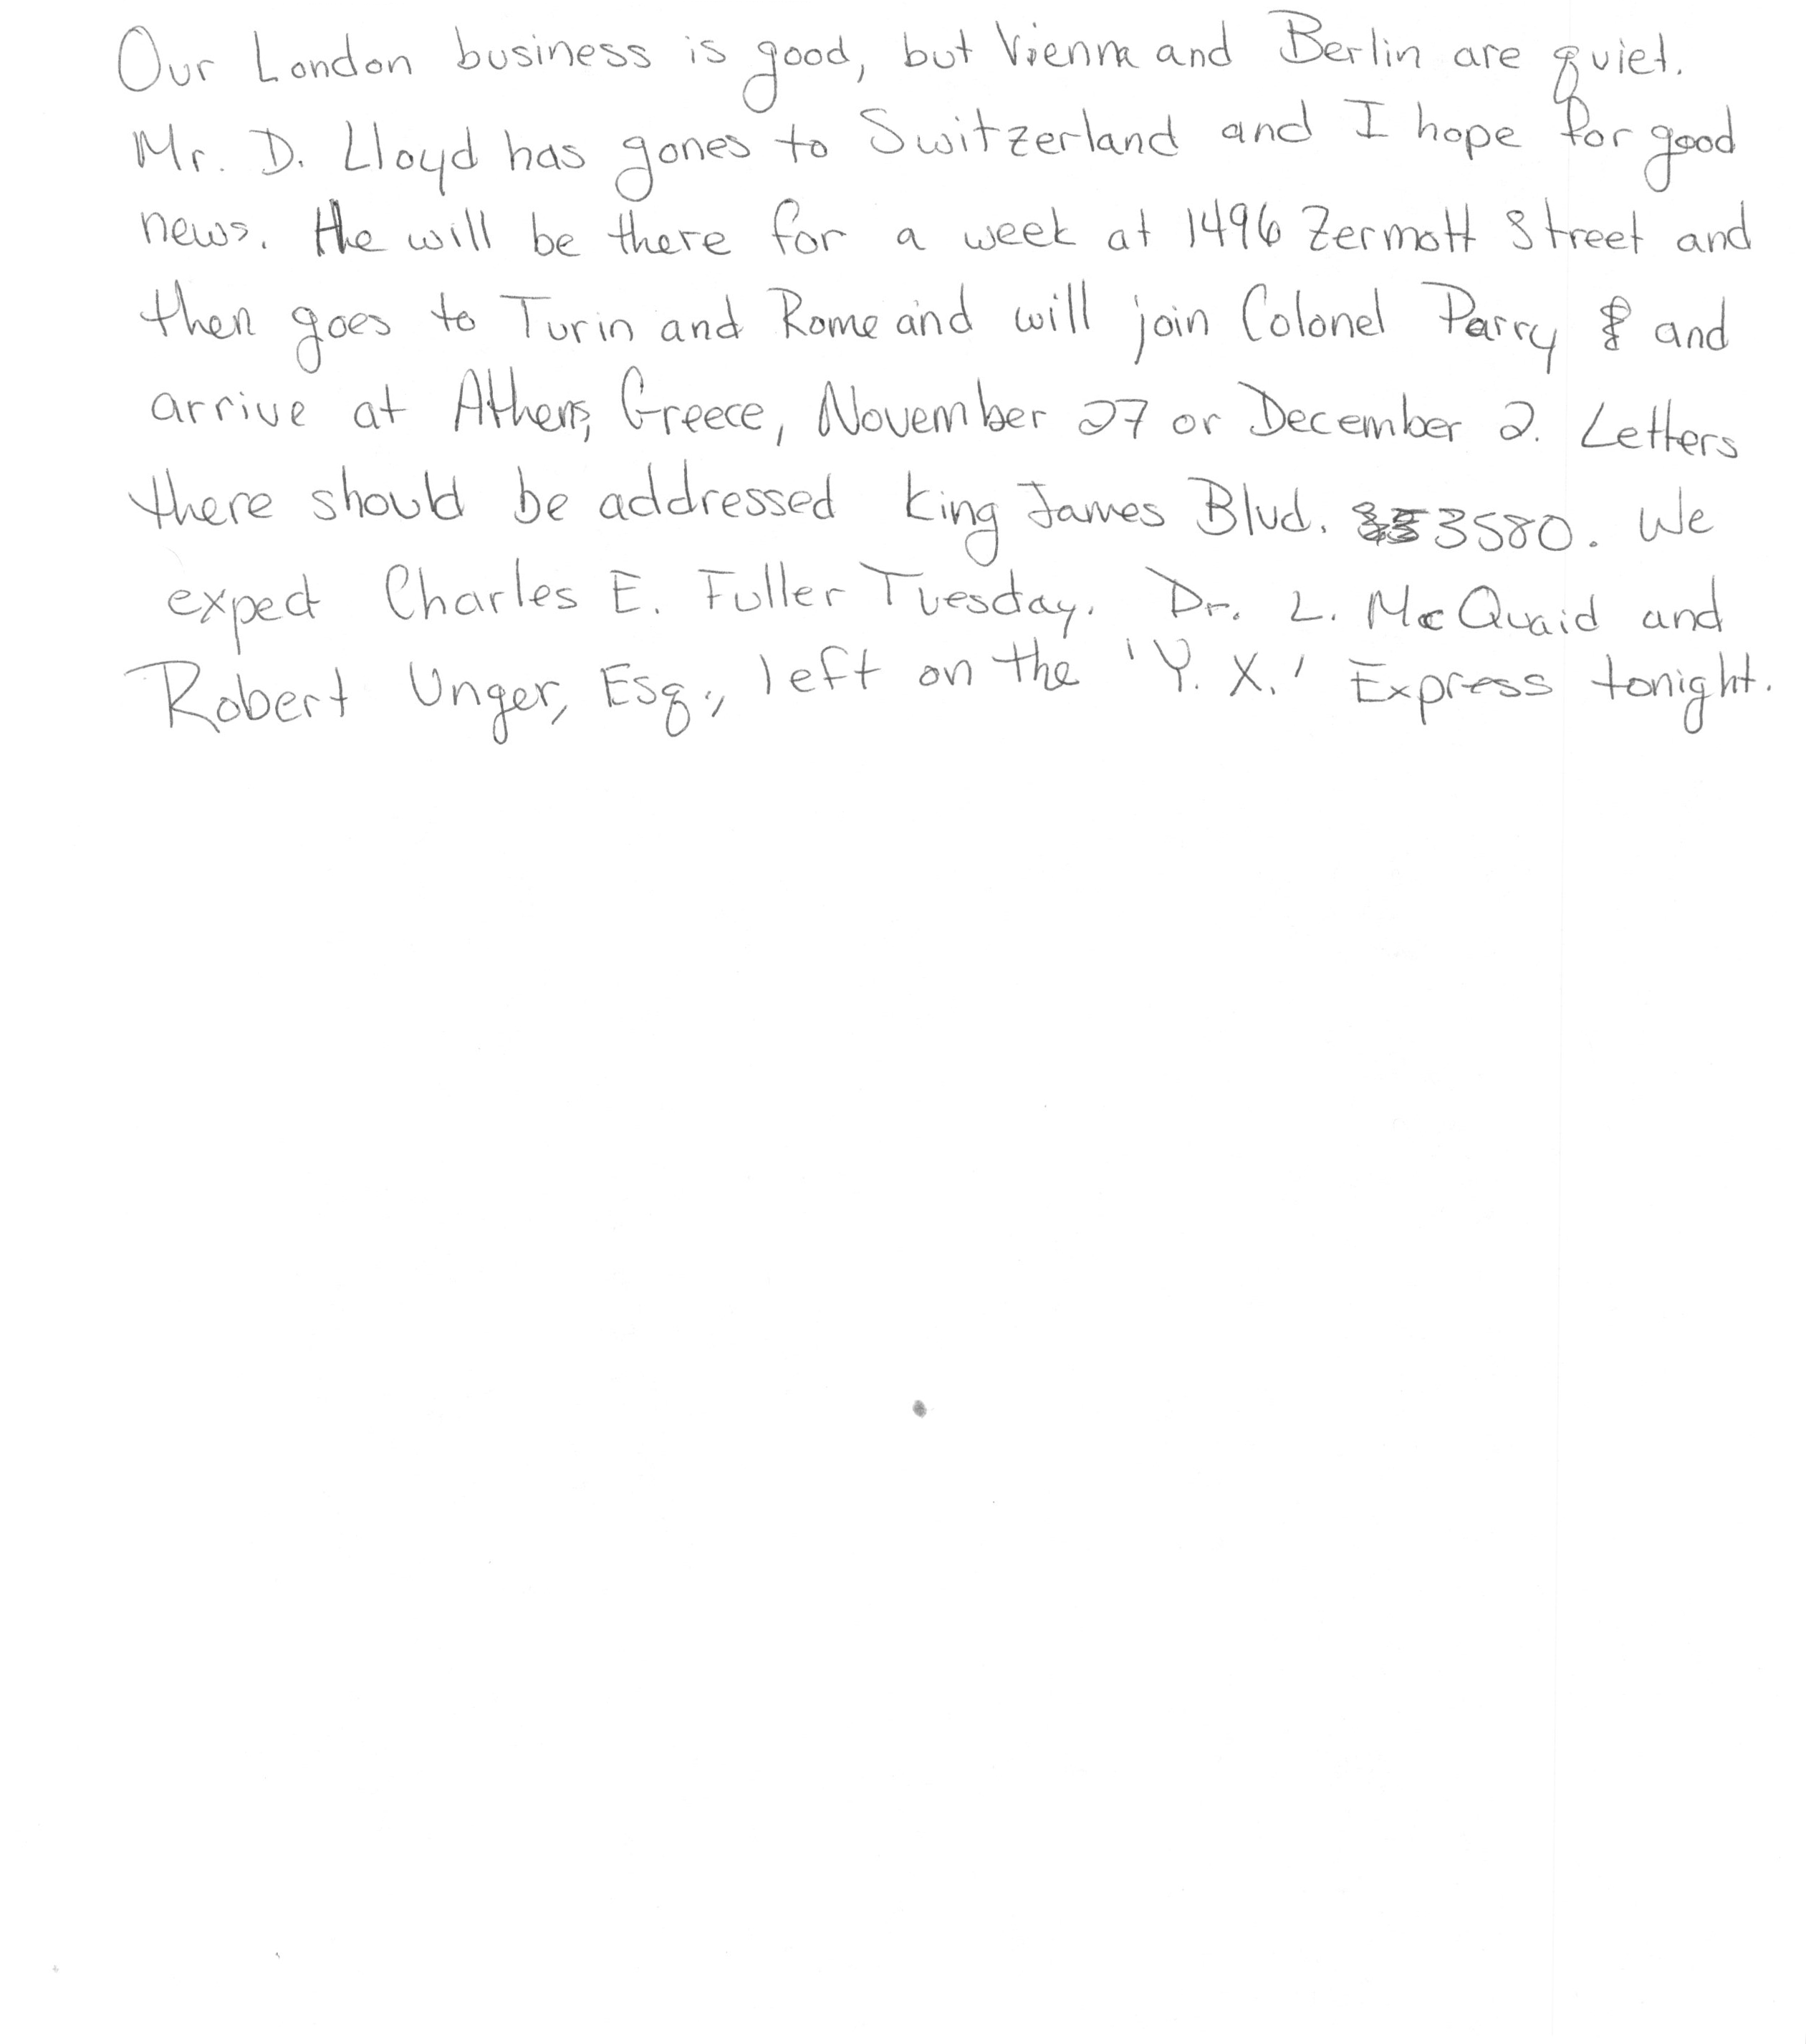 Our London business is good, but Vienna and Berlin are quiet.
Mr. D. Lloyd has gones to Switzerland and I hope for good
news. He will be there for a week at 1496 Zermott Street and
then goes to Turin and Rome and will join Colonel Parry and
arrive at Athens, Greece, November 27 or December 2. Letters
there should be addressed King James Blvd. 3580. We
expect Charles E. Fuller Tuesday. Dr. L. McQuaid and
Robert Unger, Esq., left on the 'Y. X.' Express tonight.